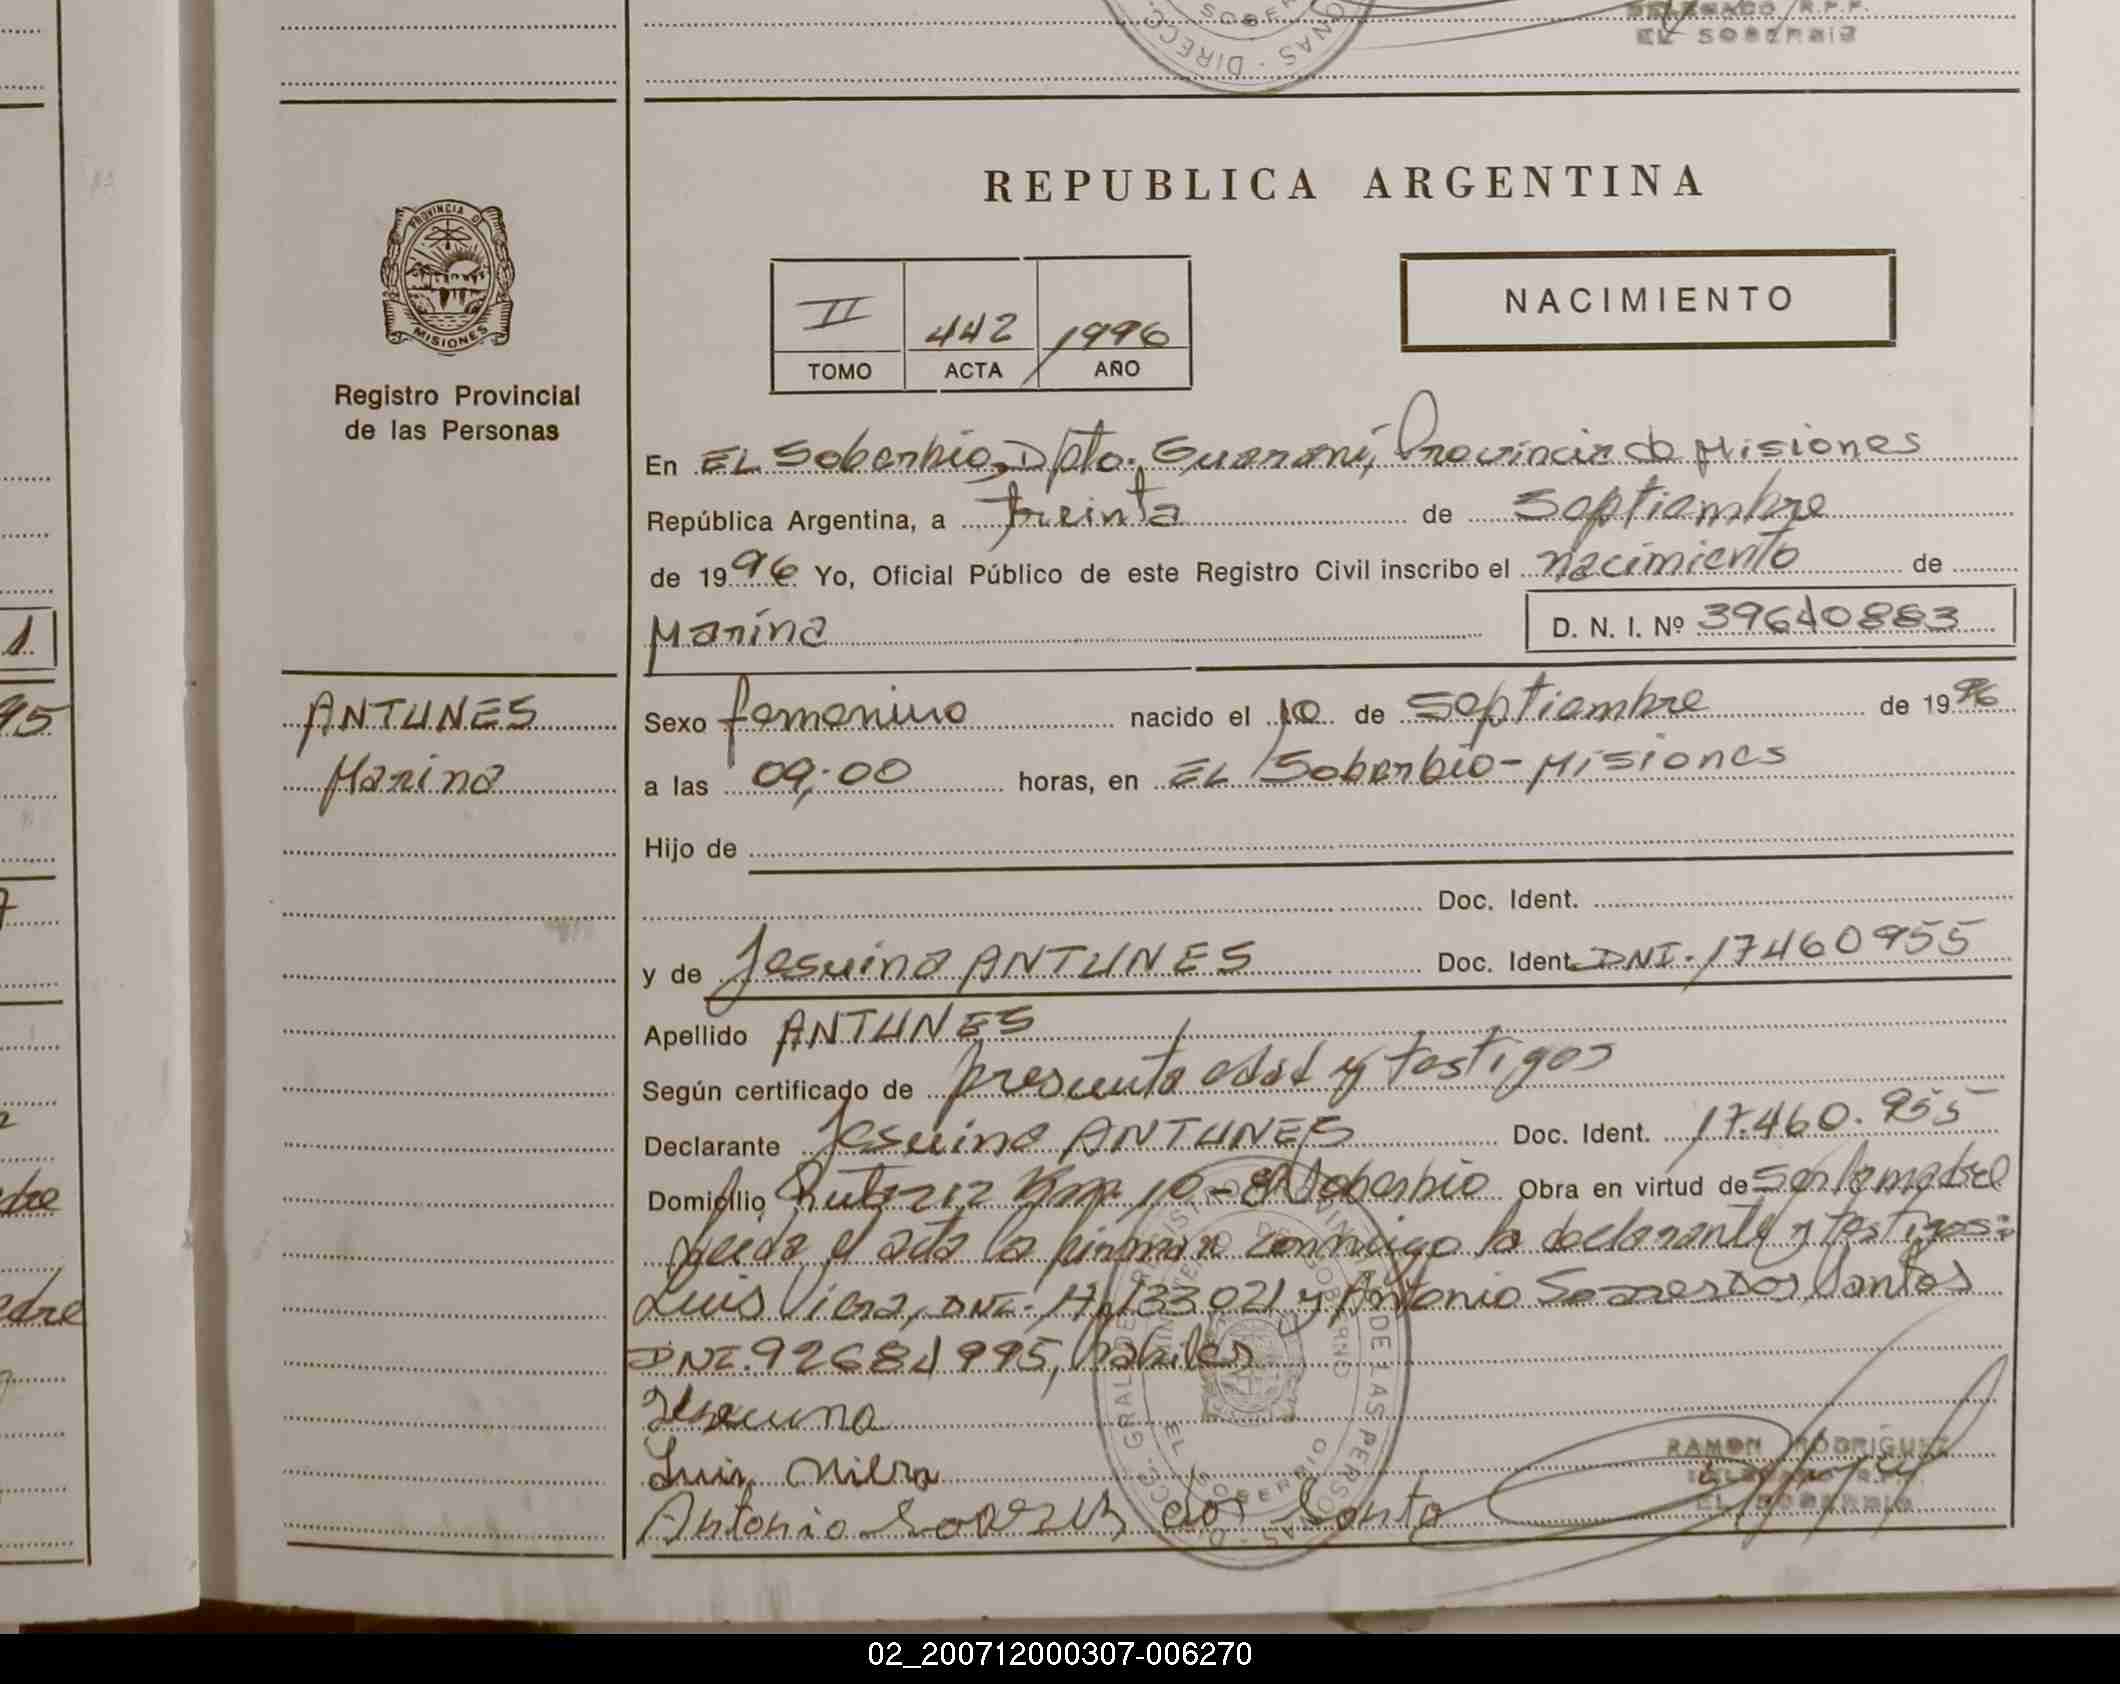 EL SOBERBIO
REPUBLICA ARGENTINA
PROVINCIA DE
MISIONES
Registro Provincial
de las Personas
II 442 1996
TOMO ACTA AÑO
NACIMIENTO
En EL Soberbio, Dpto. Guaraní, Provincia de Misiones
República Argentina, a treinta de Septiembre
de 1996 Yo, Oficial Público de este Registro Civil inscribo el nacimiento de
Marina D. N. I. Nº 39640883
ANTUNES
Marina
Sexo femenino nacido el 10 de Septiembre de 1996
a las 09:00 horas, en EL Soberbio - Misiones
Hijo de
Doc. Ident.
y de Jesuina ANTUNES Doc. Ident. DNI. 17460955
Apellido ANTUNES
Según certificado de presunta edad y testigos
Declarante Jesuina ANTUNES Doc. Ident. 17.460.955
Domicilio Ruta 212 Km. 10 - El Soberbio Obra en virtud de ser la madre
Leida el acta la firman conmigo la declarante y testigos:
Luis Viera, DNI. 133021 y Antonio Soares Dos Santos
DNI. 92684995, habiles
Jesuina
Luis
Antonio Soares dos Santo
RAMON RODRIGUEZ
EL SOBERBIO
02_200712000307-006270